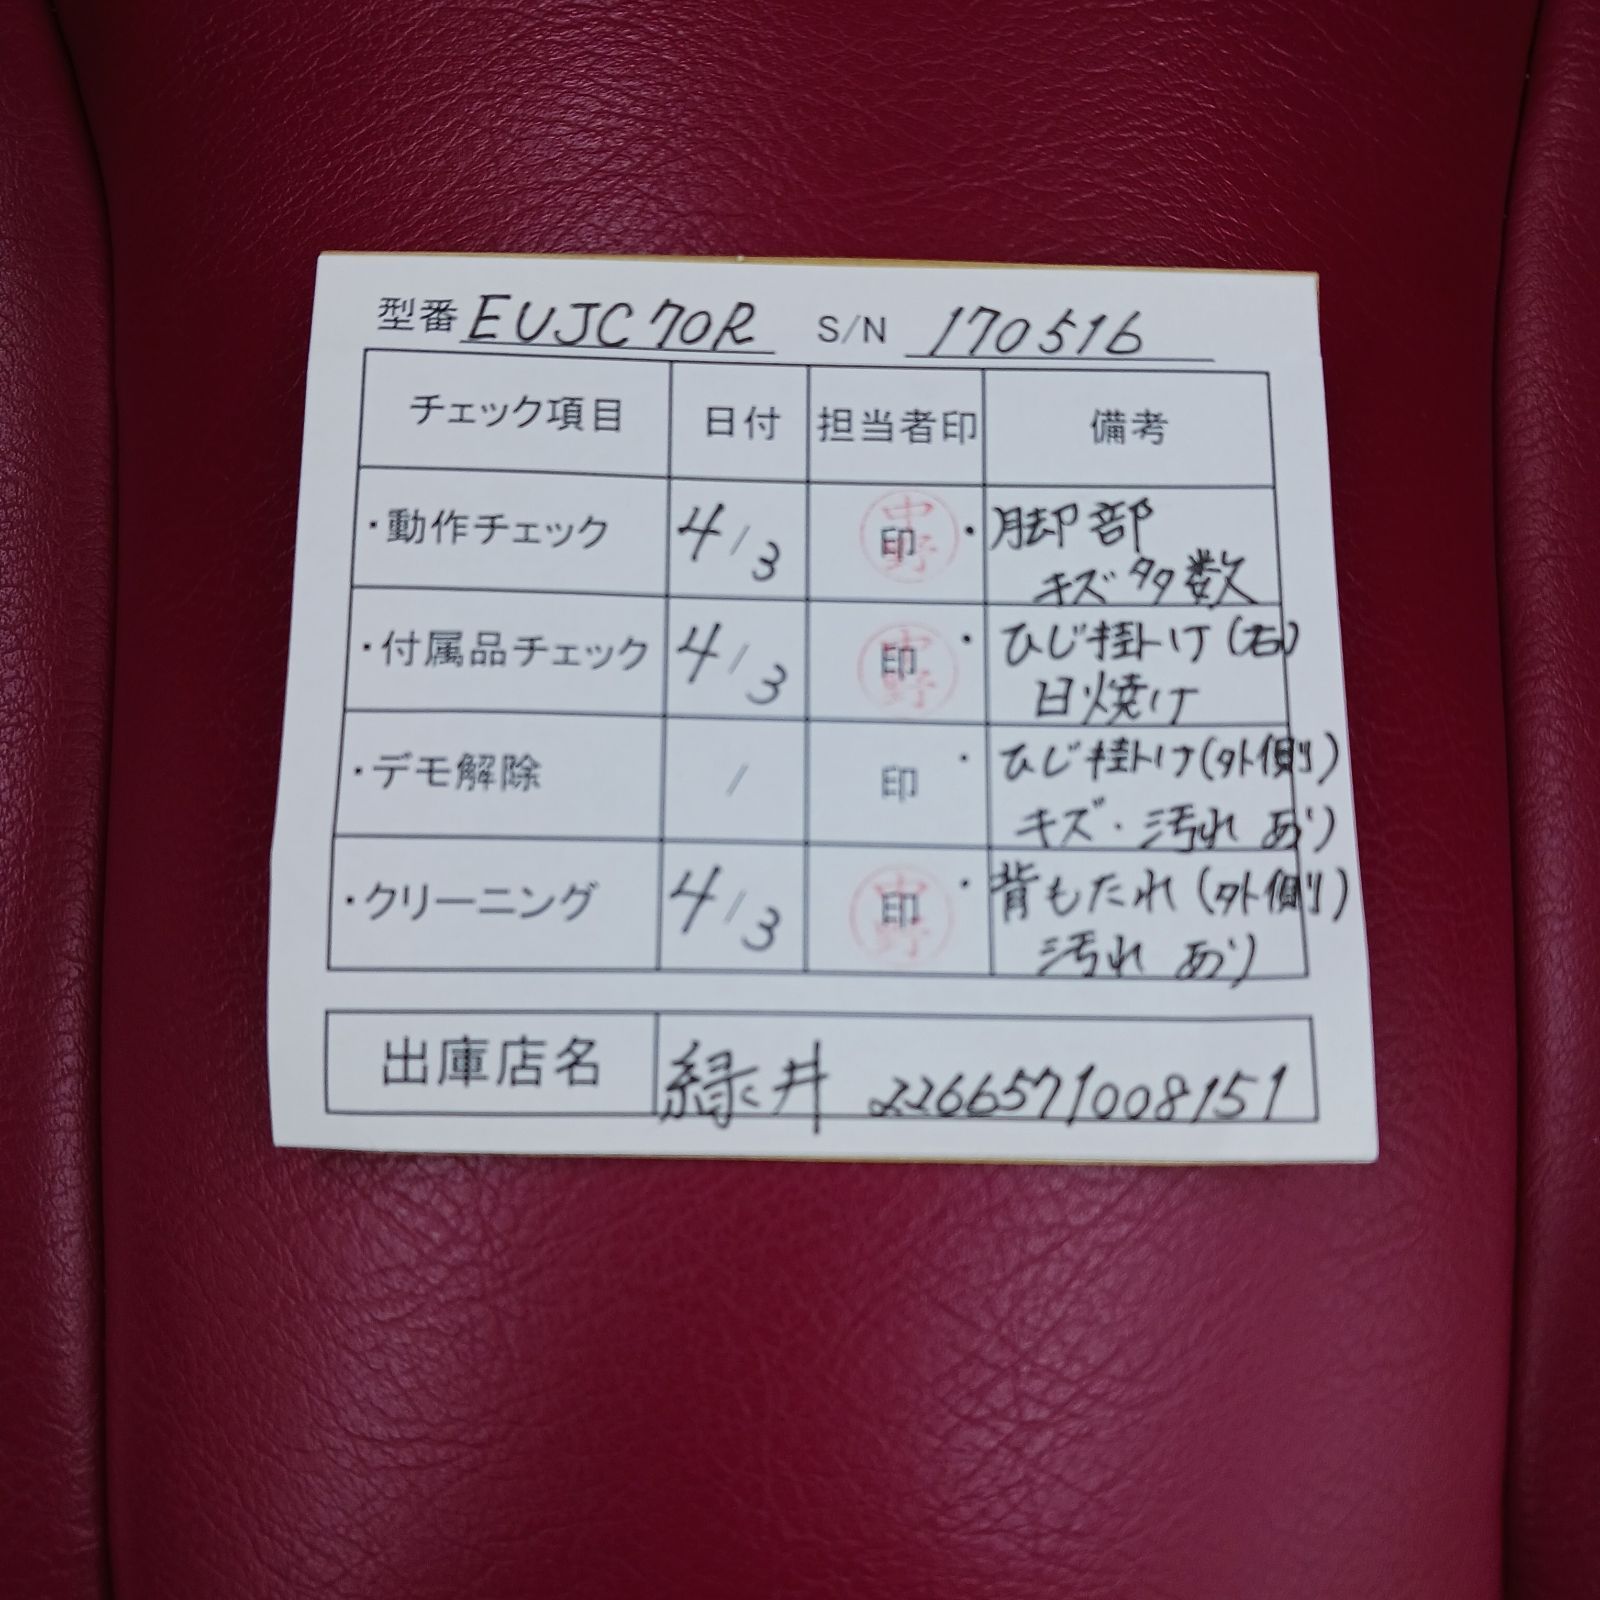 型番 EUJC70R S/N 170516
チェック項目 日付 担当者印 備考
・動作チェック 4/3 印 中野 ・脚部
キズ多数
・付属品チェック 4/3 印 中野 ・ひじ掛け(右)
日焼け
・デモ解除 / 印 ・ひじ掛け(外側)
キズ・汚れあり
・クリーニング 4/3 印 中野 ・背もたれ(外側)
汚れあり
出庫店名 緑井 2266571008151